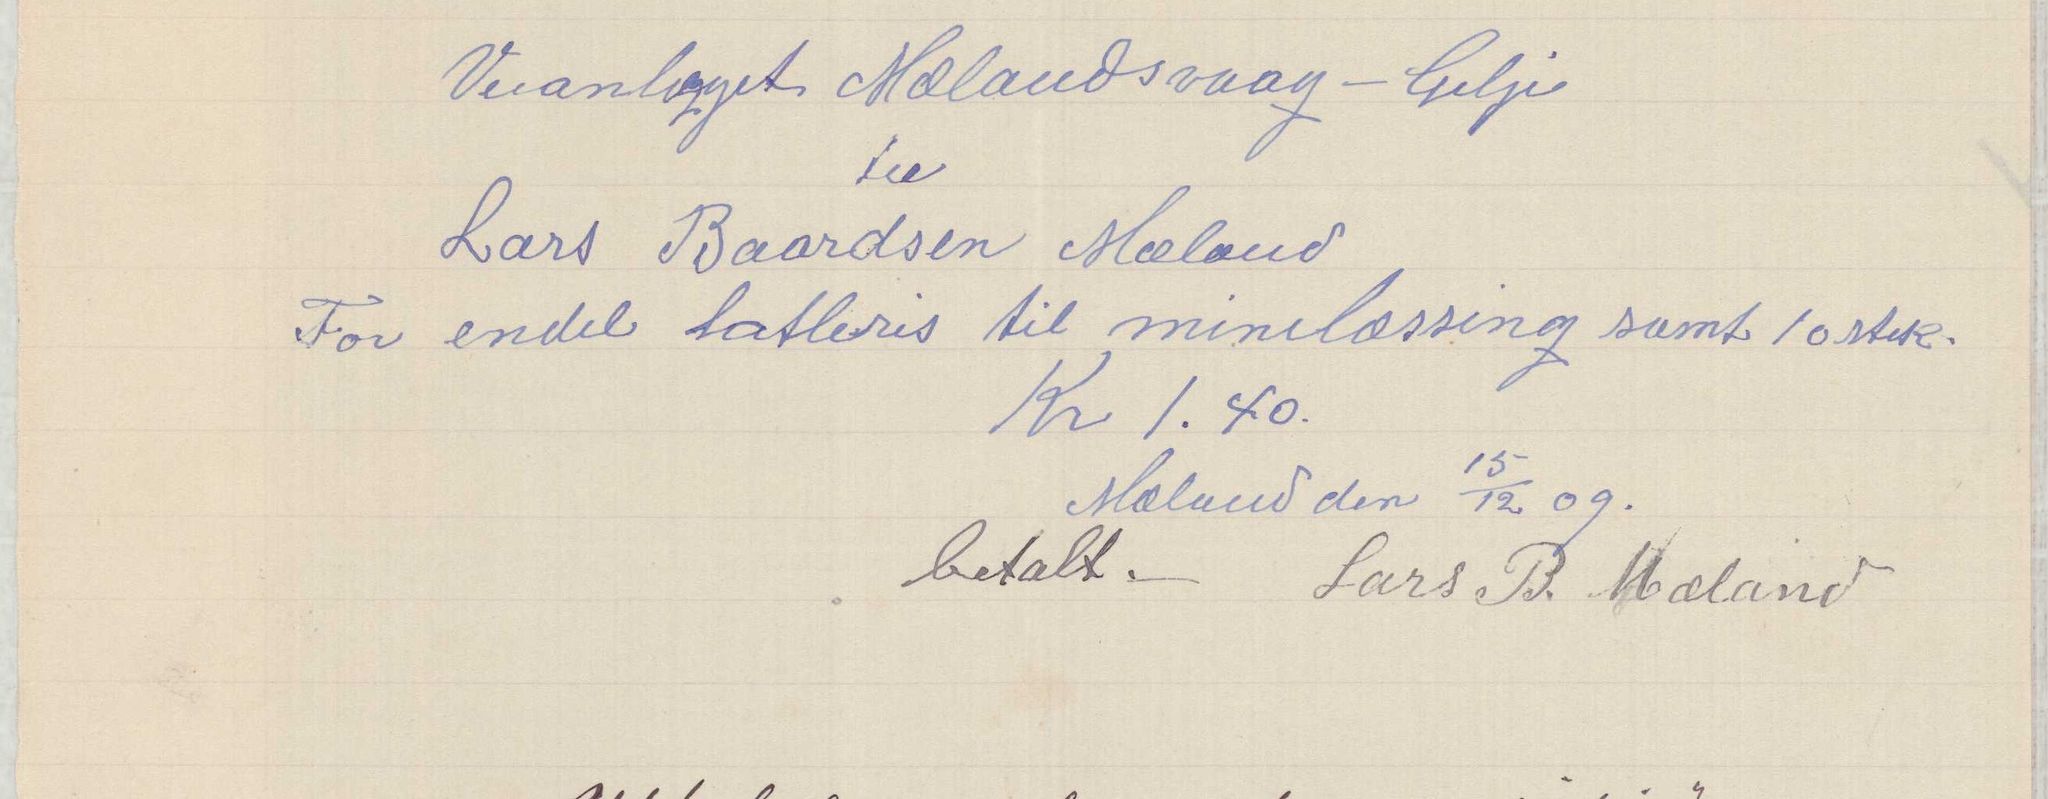 Veianlægget Mælandsvaag – Gilje
til
Lars Baardsen Mæland
For endel latleris til minelæssing samt 10 stek.
Kr 1.40.
Mæland den 15/12 09.
betalt. — Lars B. Mæland